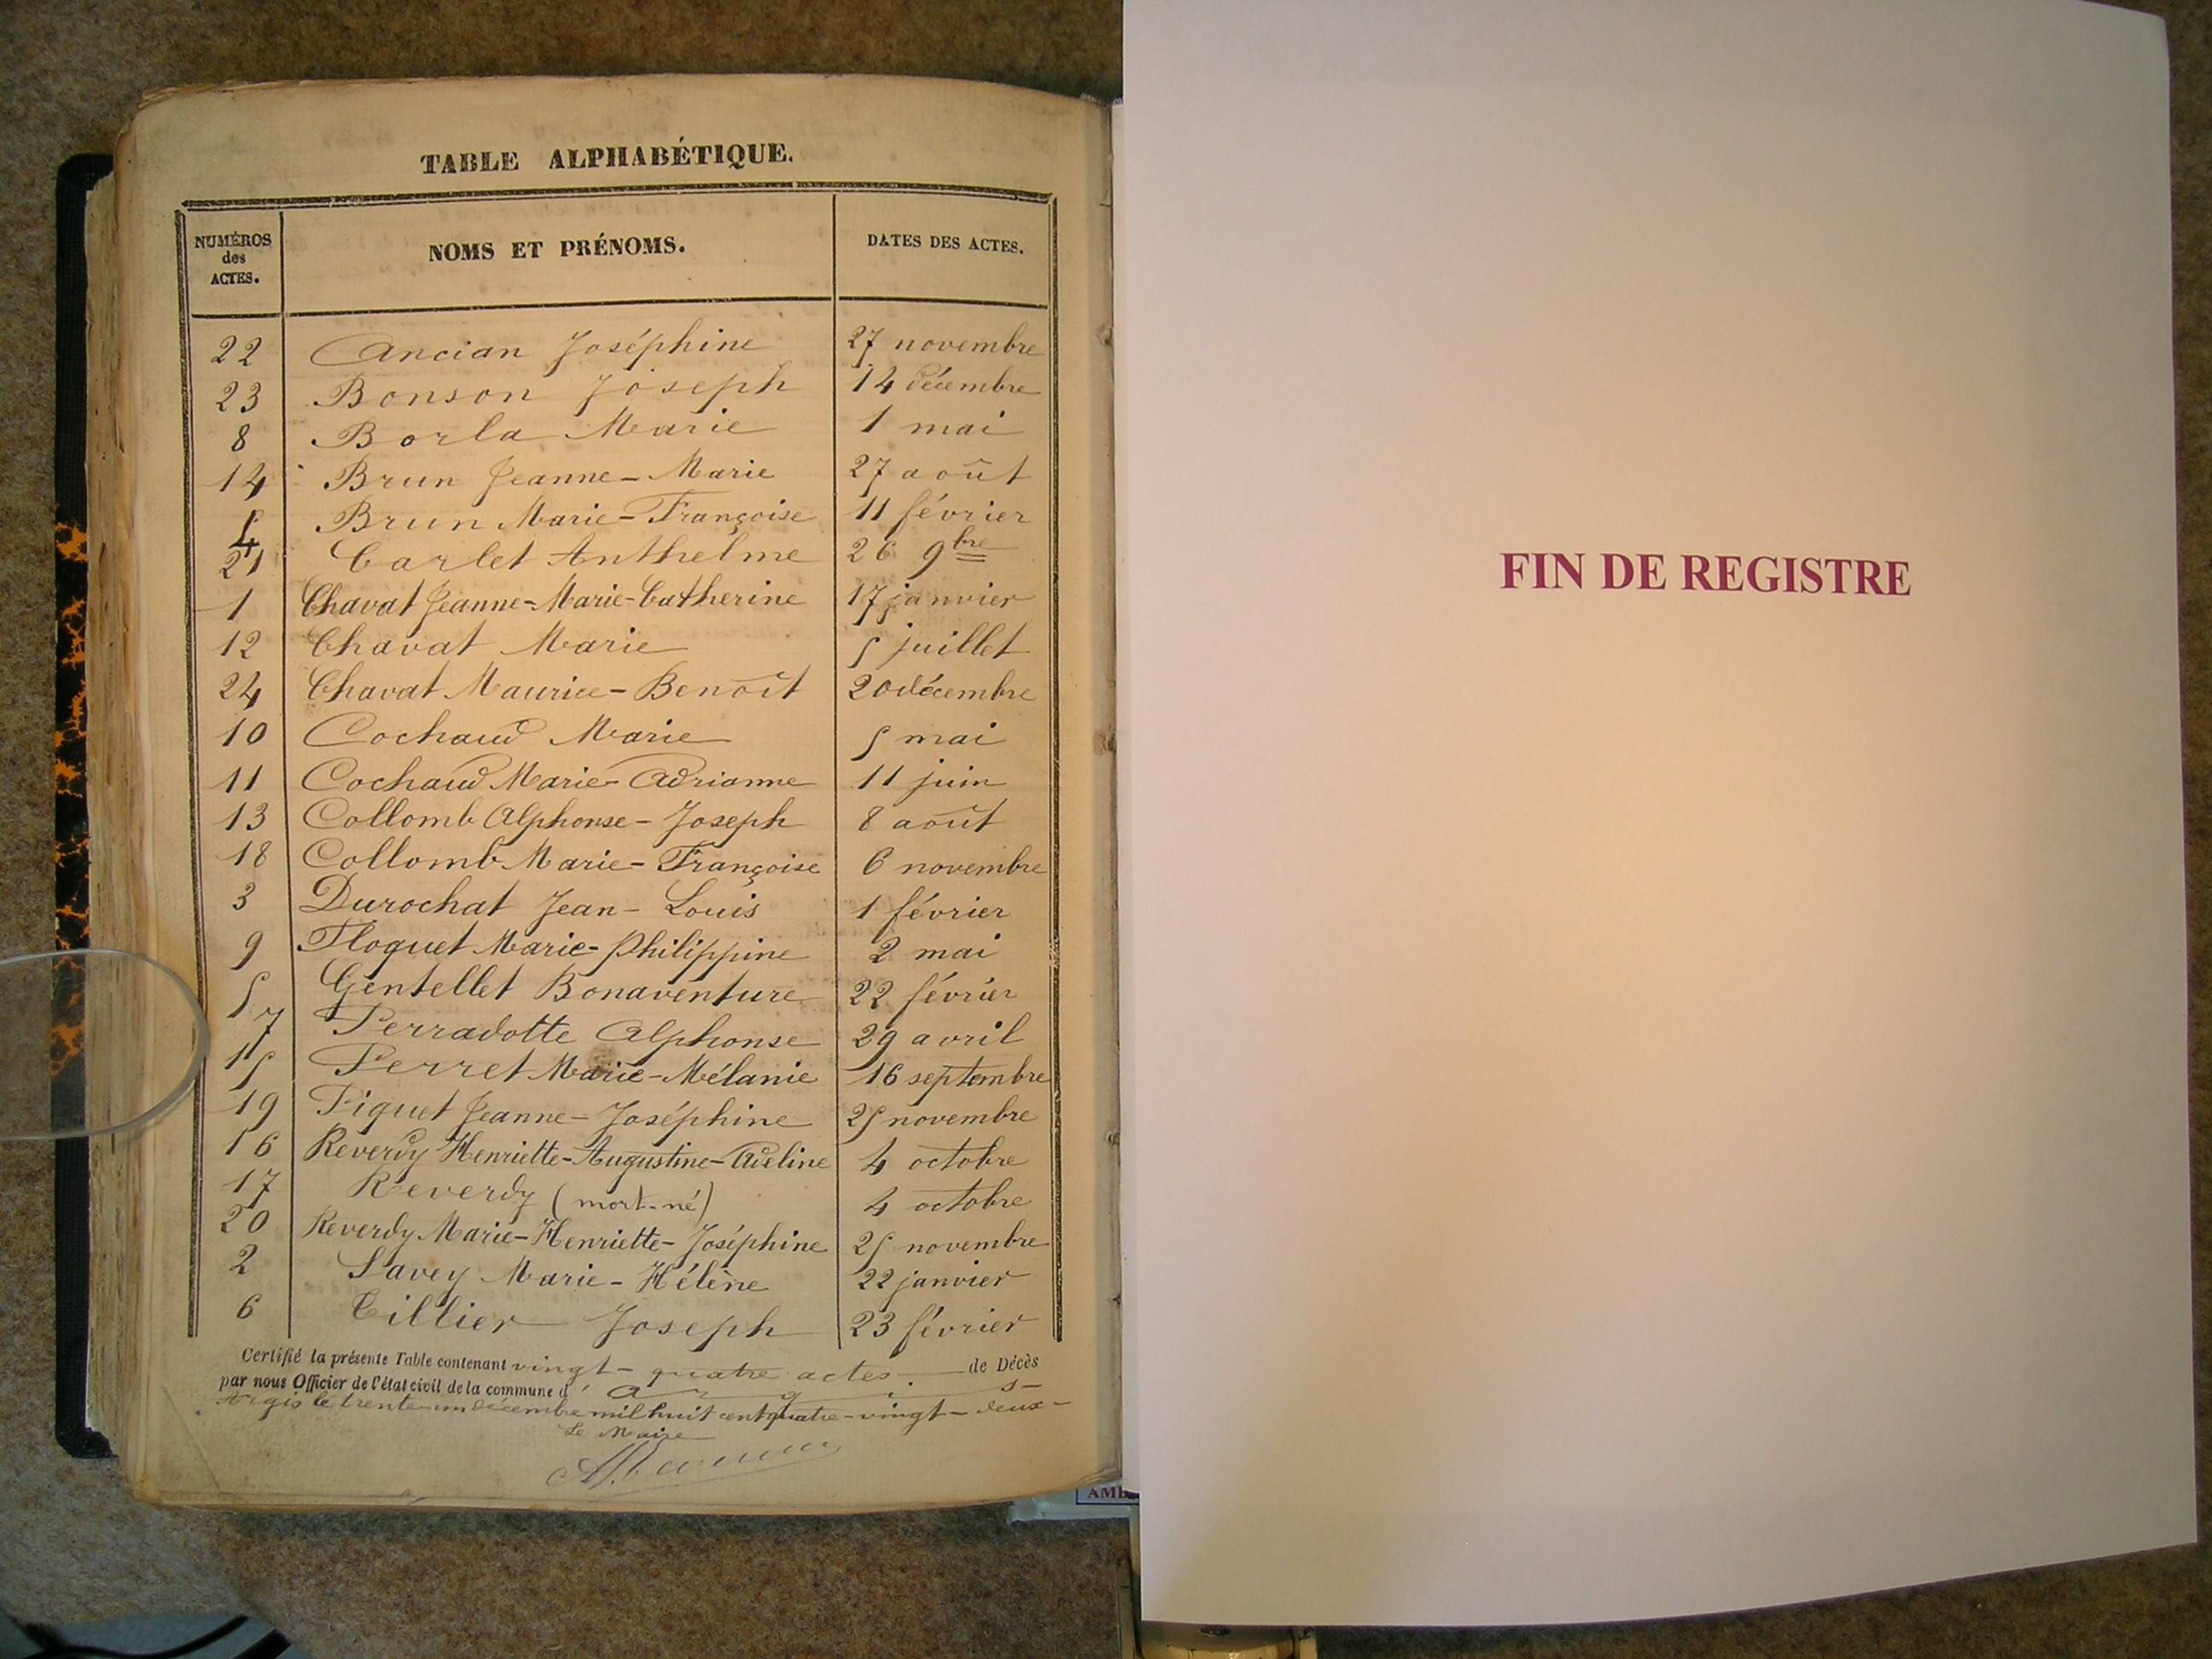 TABLE ALPHABÉTIQUE.
NUMÉROS des ACTES. NOMS ET PRÉNOMS. DATES DES ACTES.
22 Ancian Joséphine 27 novembre
23 Bonson Joseph 14 décembre
8 Borla Marie 1 mai
14 Brun Jeanne-Marie 27 août
4 Brun Marie-Françoise 11 février
21 Carlet Anthelme 26 9bre
1 Chavat Jeanne-Marie-Catherine 17 janvier
12 Chavat Marie 5 juillet
24 Chavat Maurice-Benoît 20 décembre
10 Cochaud Marie 5 mai
11 Cochaud Marie-Adrianne 11 juin
13 Collomb Alphonse-Joseph 8 août
18 Collomb Marie-Françoise 6 novembre
3 Durochat Jean-Louis 1 février
9 Floquet Marie-Philippine 2 mai
5 Gentellet Bonaventure 22 février
7 Perradotte Alphonse 29 avril
15 Perret Marie-Mélanie 16 septembre
19 Piquet Jeanne-Joséphine 25 novembre
16 Reverdy Henriette-Augustine-Adeline 4 octobre
17 Reverdy (mort-né) 4 octobre
20 Reverdy Marie-Henriette-Joséphine 25 novembre
2 Savey Marie-Hélène 22 janvier
6 Tillier Joseph 23 février
Certifié la présente Table contenant vingt-quatre actes de Décès
par nous Officier de l'état civil de la commune d'Argis
Argis le trente un décembre mil huit cent quatre-vingt-deux
Le Maire
FIN DE REGISTRE